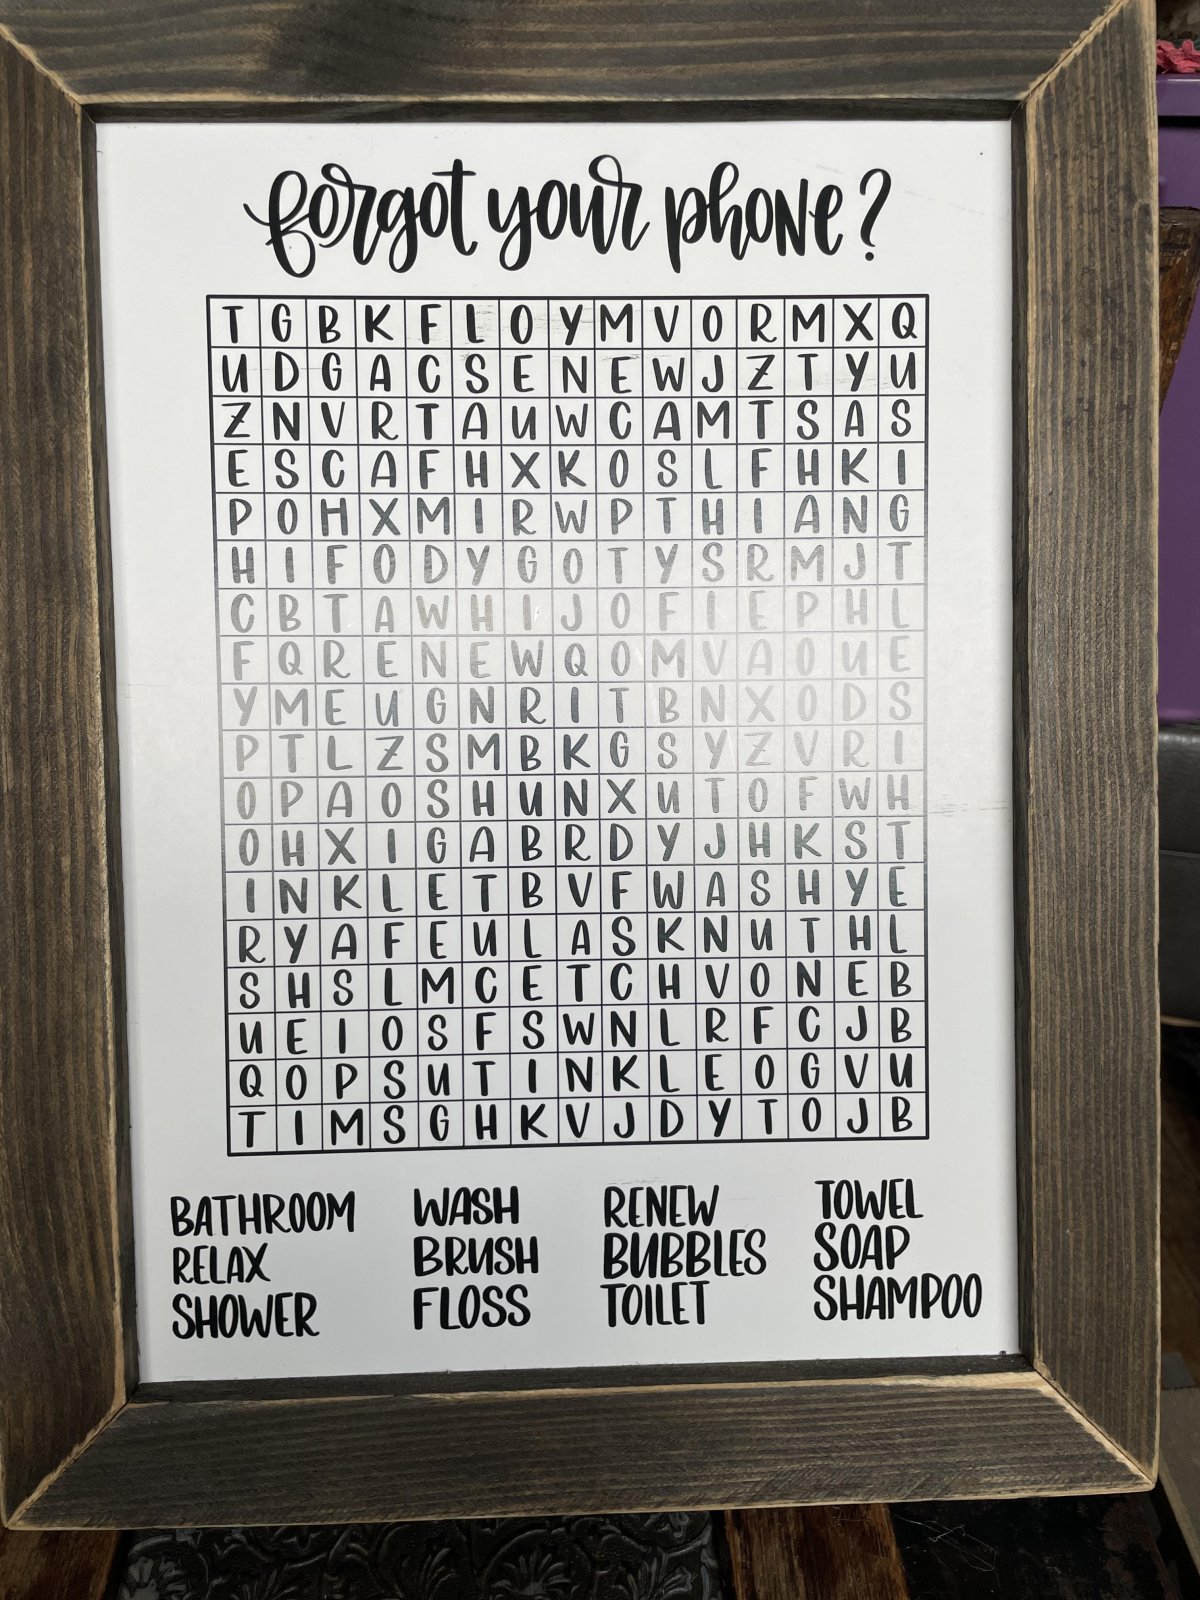 forgot your phone?
T G B K F L O Y M V O R M X Q
U D G A C S E N E W J Z T Y U
Z N V R T A U W C A M T S A S
E S C A F H X K O S L F H K I
P O H X M I R W P T H I A N G
H I F O D Y G O T Y S R M J T
C B T A W H I J O F I E P H L
F Q R E N E W Q O M V A O U E
Y M E U G N R I T B N X O D S
P T L Z S M B K G S Y Z V R I
O P A O S H U N X U T O F W H
O H X I G A B R D Y J H K S T
I N K L E T B V F W A S H Y E
R Y A F E U L A S K N U T H L
S H S L M C E T C H V O N E B
U E I O S F S W N L R F C J B
Q O P S U T I N K L E O G V U
T I M S G H K V J D Y T O J B
BATHROOM WASH RENEW TOWEL
RELAX BRUSH BUBBLES SOAP
SHOWER FLOSS TOILET SHAMPOO